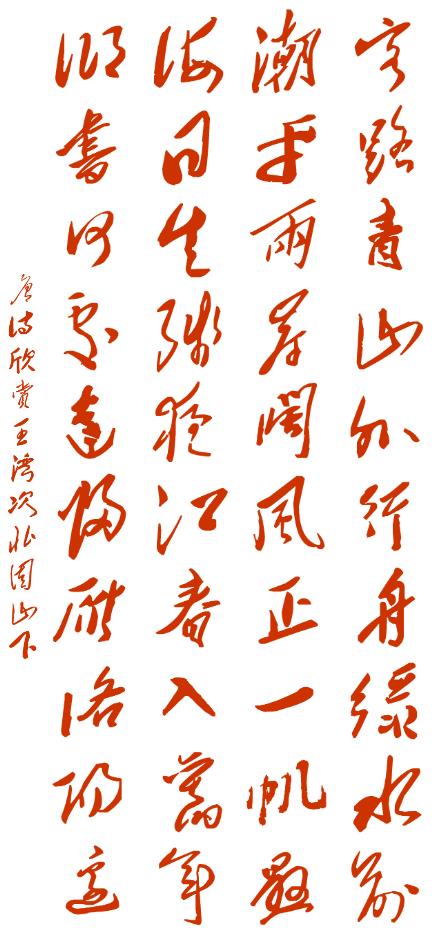 客路青山外行舟綠水前
潮平兩岸闊風正一帆懸
海日生殘夜江春入舊年
鄉書何處達歸雁洛陽邊
唐詩欣賞王灣次北固山下